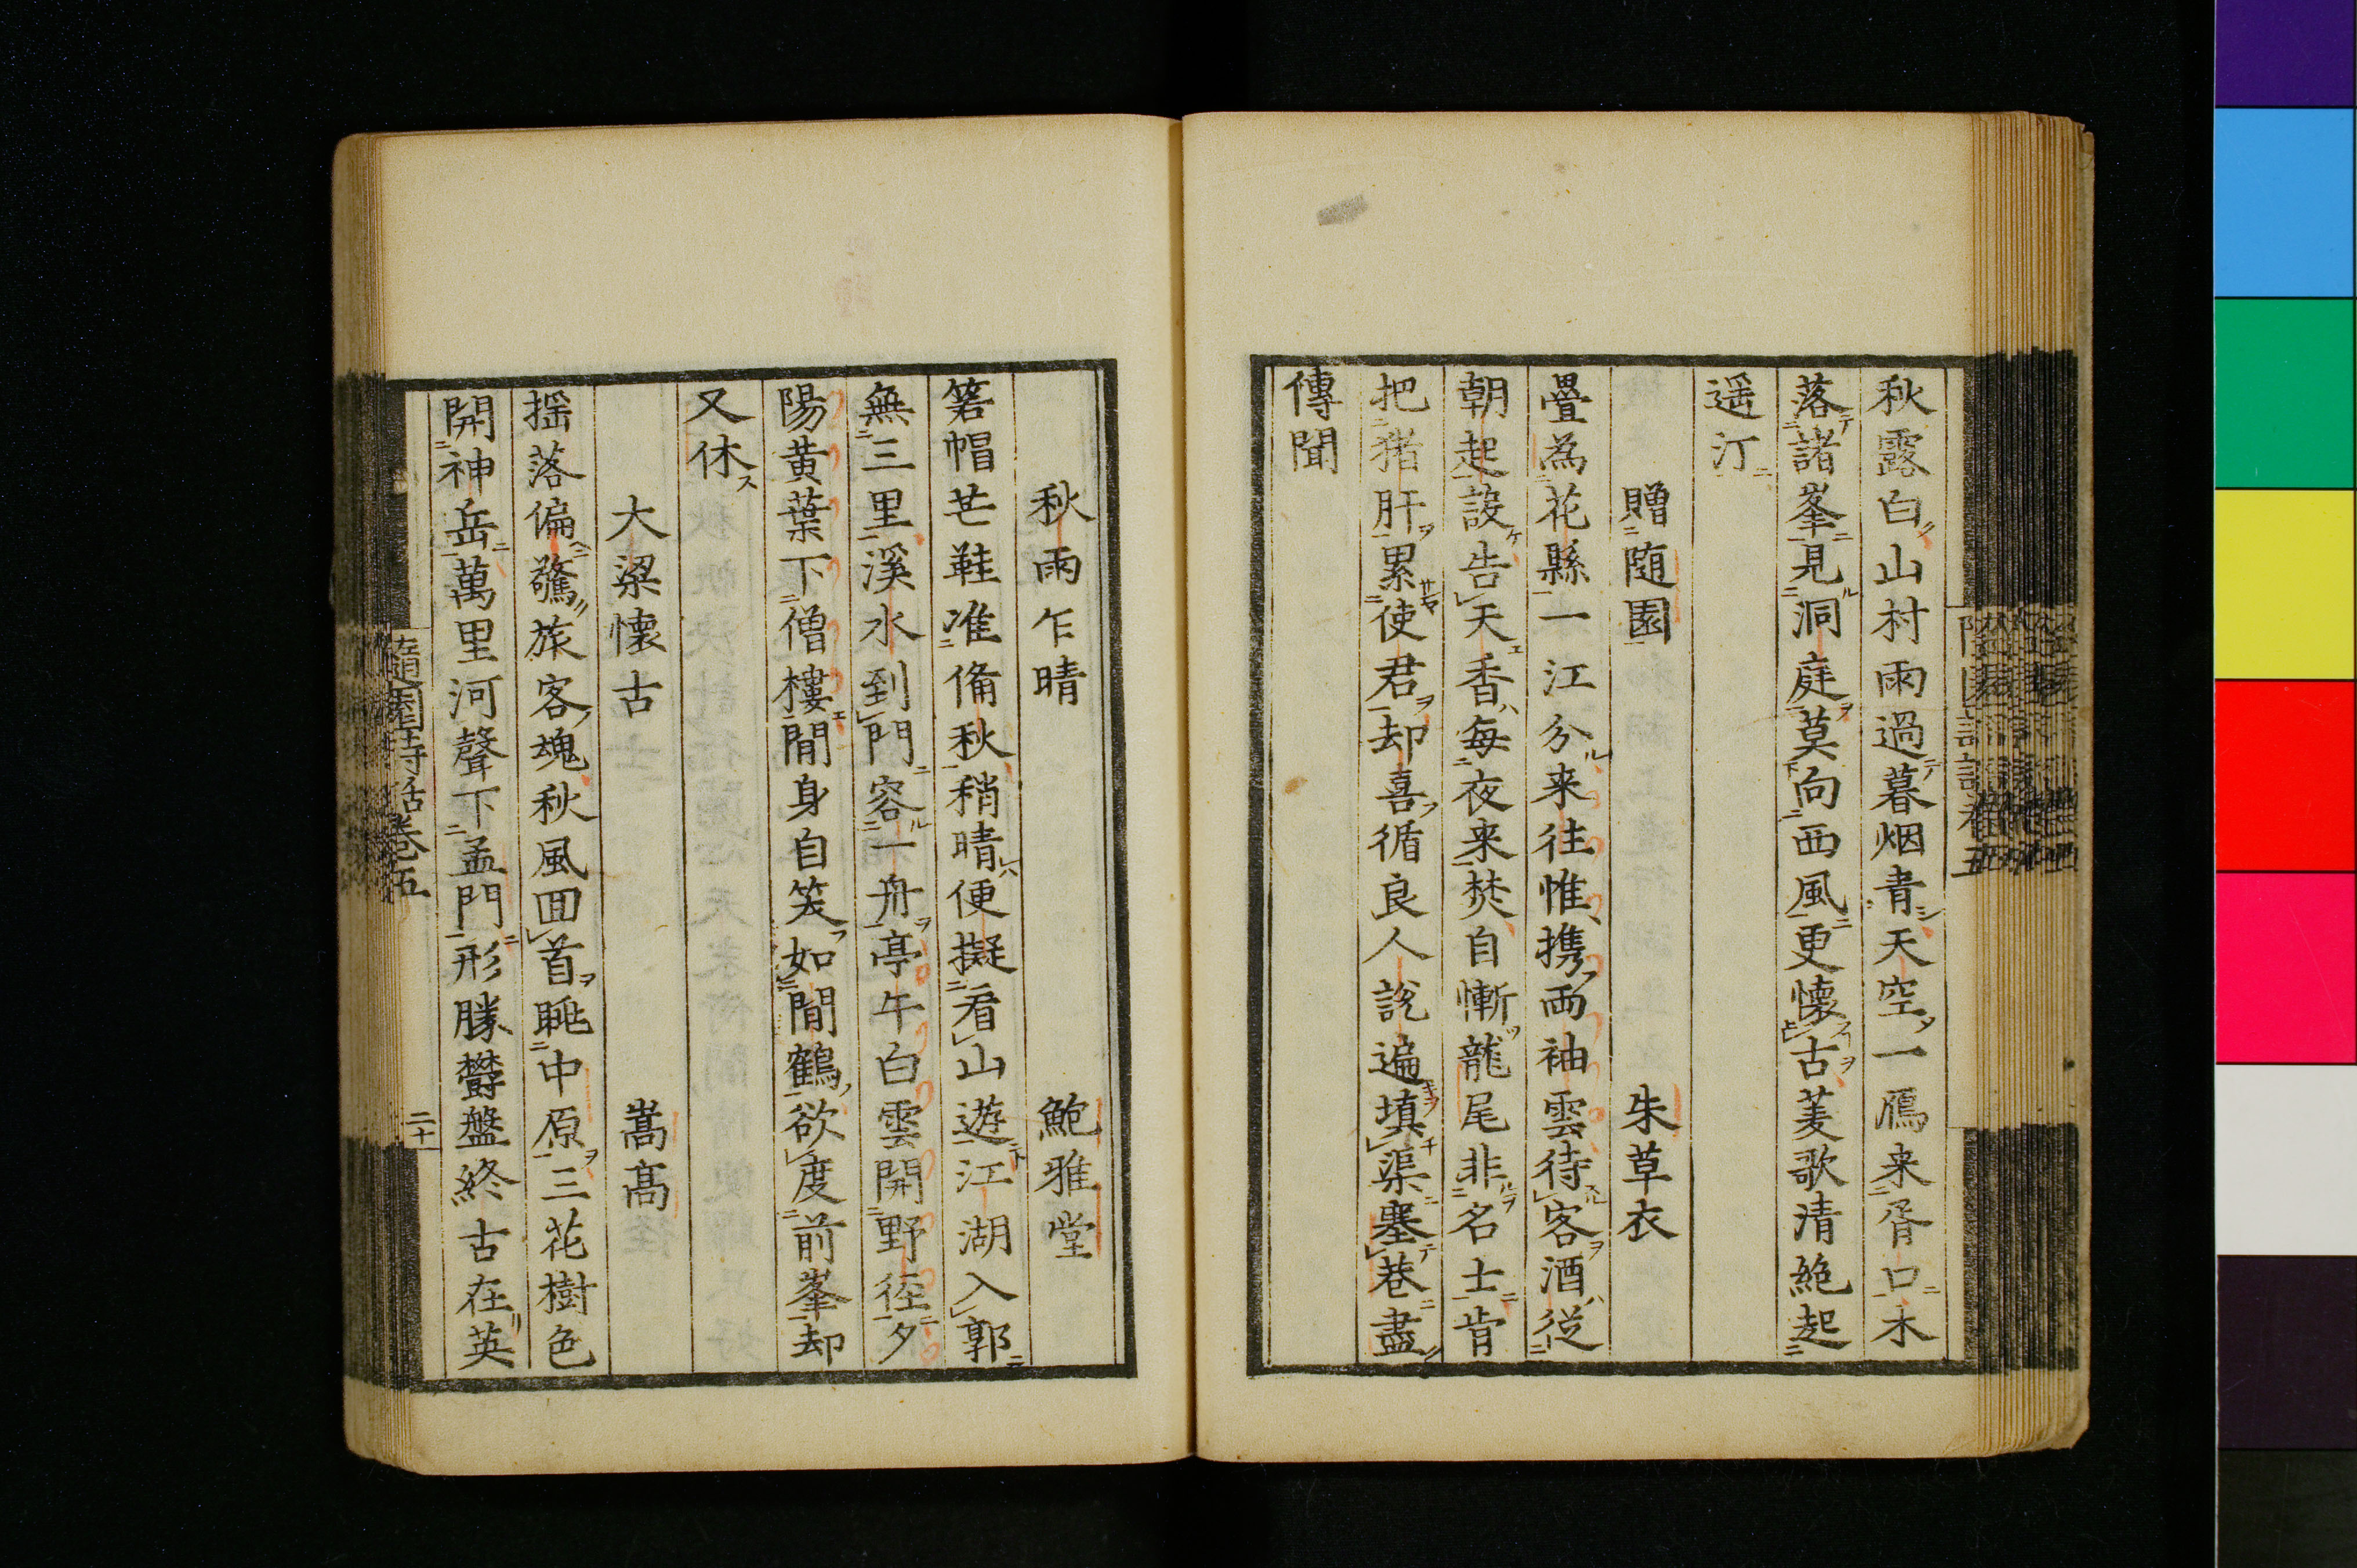 秋露白山村雨過暮烟青天空一鴈来胥口木
落諸峯見洞庭莫向西風更懐古菱歌清絶起
遥汀
贈随園 朱草衣
疊為花縣一江分来往惟携両袖雲待客酒従
朝起設告天香毎夜来焚自慚龍尾非名士肯
把猪肝累使君却喜循良人説遍填渠塞巷盡
傳聞
秋雨乍晴 鮑雅堂
箬帽芒鞋准備秋稍晴便擬看山遊江湖入郭
無三里溪水到門容一舟亭午白雲開野徑夕
陽黄葉下僧樓閒身自笑如閒鶴欲度前峯却
又休
大梁懐古 嵩高
揺落偏驚旅客魂秋風囬首眺中原三花樹色
開神岳萬里河聲下孟門形勝欝盤終古在英
隨園詩話卷五
二十一